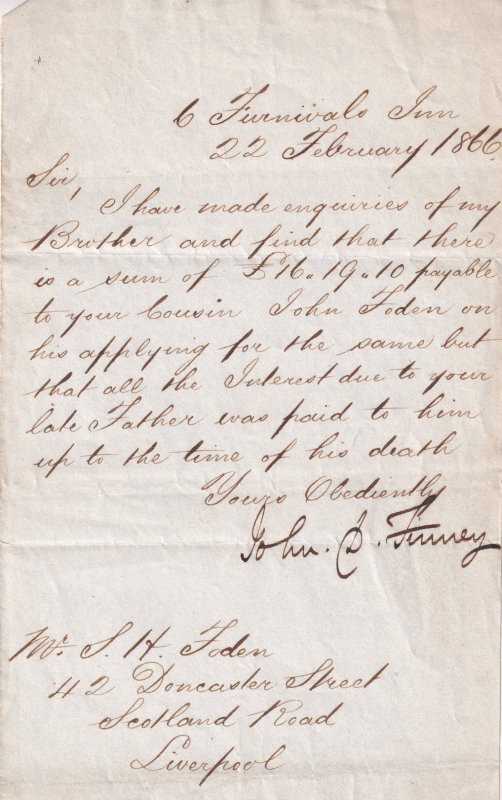 6 Furnivals Inn
22 February 1866
Sir,
I have made enquiries of my
Brother and find that there
is a sum of £16.19.10 payable
to your Cousin John Foden on
his applying for the same but
that all the Interest due to your
late Father was paid to him
up to the time of his death
Yours Obediently
John. D. Finney
Mr. S. H. Foden
42 Doncaster Street
Scotland Road
Liverpool